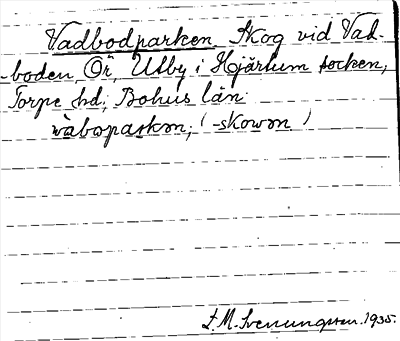 Vadbodparken. Skog vid Vad-
boden, Ör, Utby i Hjärtum socken,
Torpe hd; Bohus län.
wàboparkən; (-skowən)
L. M. Svenungsson. 1935.